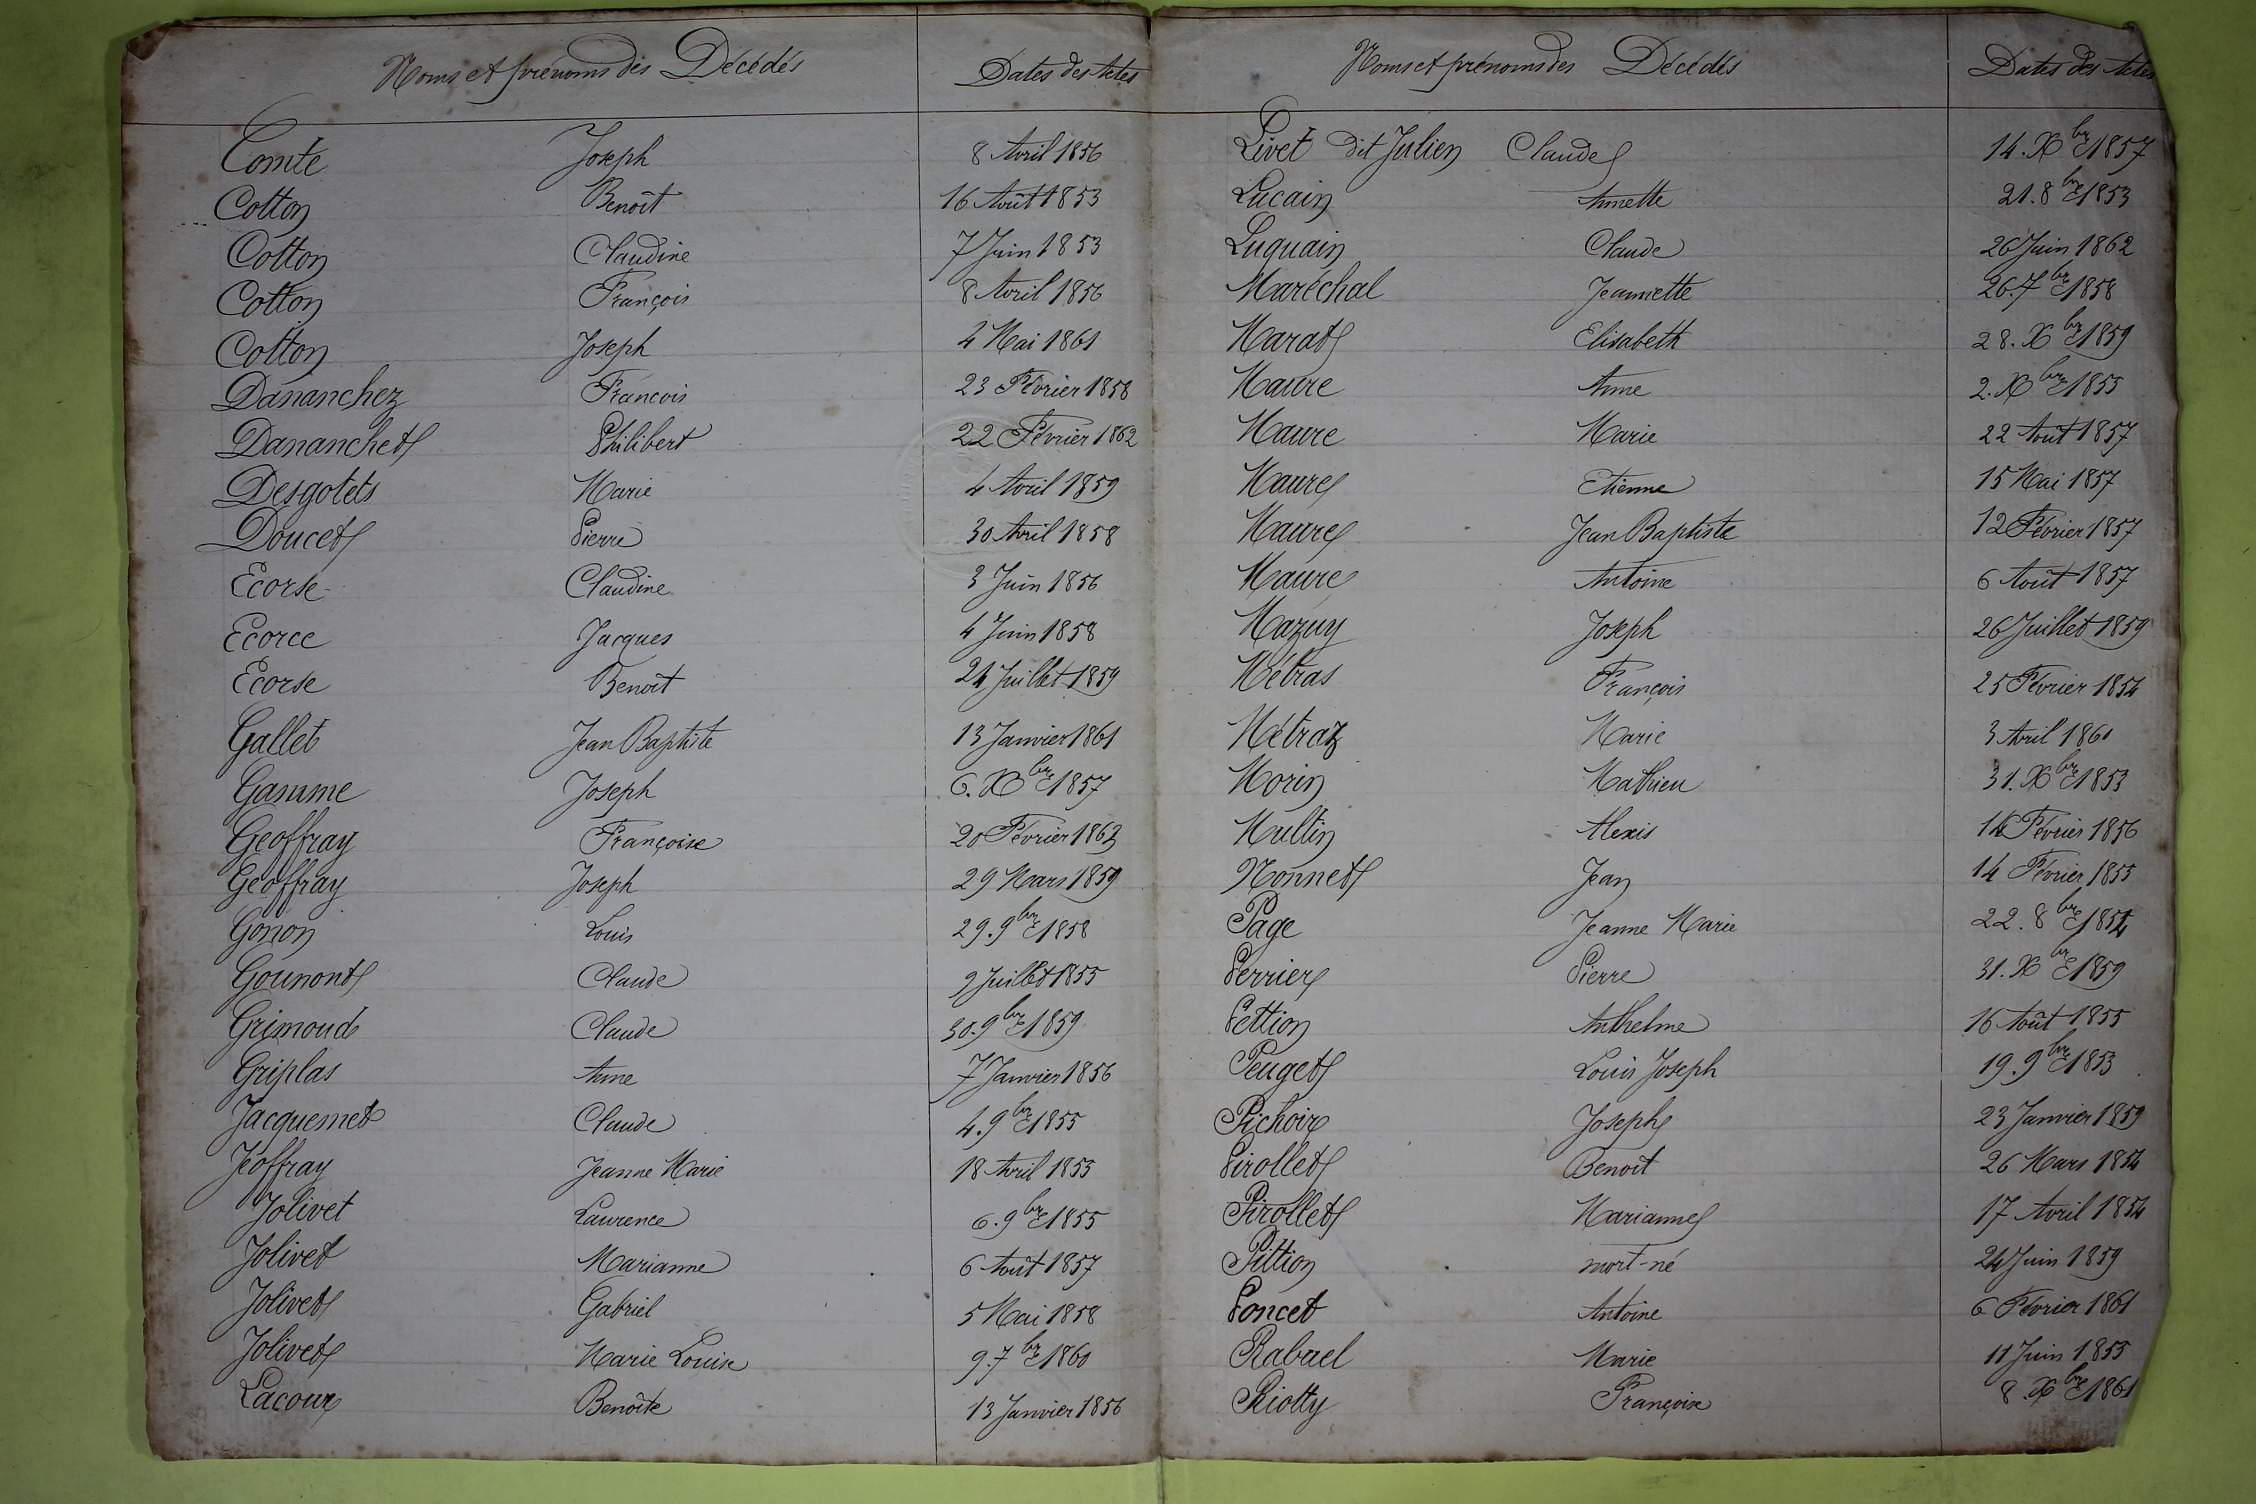 Noms et prénoms des Décédés Dates des Actes
Comte Joseph 8 Avril 1856
Cotton Benoît 16 Août 1853
Cotton Claudine 7 Juin 1853
Cotton François 8 Avril 1856
Cotton Joseph 4 Mai 1861
Dananchez François 23 Février 1858
Dananchet Philibert 22 Février 1862
Desgotets Marie 4 Avril 1859
Doucet Pierre 30 Avril 1858
Ecorse Claudine 3 Juin 1856
Ecorce Jacques 4 Juin 1858
Ecorse Benoit 24 Juillet 1859
Gallet Jean Baptiste 13 Janvier 1861
Gamme Joseph 6. Xbre 1857
Geoffray Françoise 20 Février 1862
Geoffray Joseph 29 Mars 1859
Gonon Louis 29. 9bre 1858
Gounont Claude 9 Juillet 1855
Grimoud Claude 30. 9bre 1859
Griplas Anne 7 Janvier 1856
Jacquemet Claude 4. 9bre 1855
Jeoffray Jeanne Marie 18 Avril 1855
Jolivet Laurence 6. 9bre 1855
Jolivet Marianne 6 Août 1857
Jolivet Gabriel 5 Mai 1858
Jolivet Marie Louise 9. 7bre 1860
Lacour Benoîte 13 Janvier 1856
Noms et prénoms des Décédés Dates des Actes
Livet dit Julien Claude 14. Xbre 1857
Lucain Annette 21. 8bre 1853
Luquain Claude 26 Juin 1862
Maréchal Jeannette 26. 7bre 1858
Marat Elisabeth 28. Xbre 1859
Maure Anne 2. Xbre 1855
Maure Marie 22 Août 1857
Maure Etienne 15 Mai 1857
Maure Jean Baptiste 12 Février 1857
Maure Antoine 6 Août 1857
Mazuy Joseph 26 Juillet 1859
Métras François 25 Février 1854
Métraz Marie 3 Avril 1860
Morin Mathieu 31. Xbre 1853
Multin Alexis 14 Février 1856
Nonnet Jean 14 Février 1855
Page Jeanne Marie 22. 8bre 1854
Perrier Pierre 31. Xbre 1859
Pettion Anthelme 16 Août 1855
Peuget Louis Joseph 19. 9bre 1853
Pichoir Joseph 23 Janvier 1859
Pirollet Benoit 26 Mars 1854
Pirollet Marianne 17 Avril 1854
Pittion mort-né 24 Juin 1859
Poncet Antoine 6 Février 1861
Rabael Marie 11 Juin 1855
Riotty Françoise 8. Xbre 1861